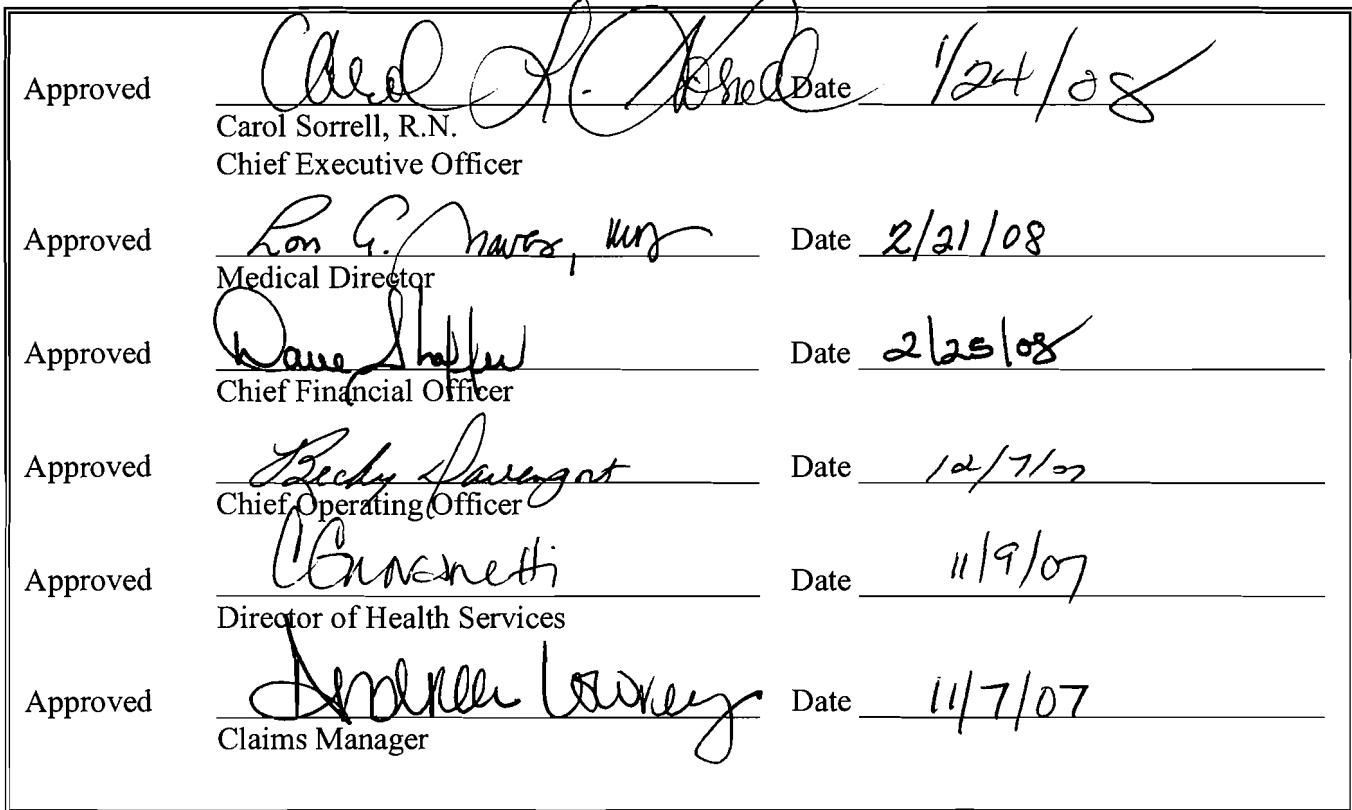 Approved Carol L. Sorrell Date 1/24/08
Carol Sorrell, R.N.
Chief Executive Officer
Approved Lon G. Date 2/21/08
Medical Director
Approved Dave Shaffer Date 2/25/08
Chief Financial Officer
Approved Becky Davenport Date 12/7/07
Chief Operating Officer
Approved Date 11/9/07
Director of Health Services
Approved Andrea Lowrey Date 11/7/07
Claims Manager